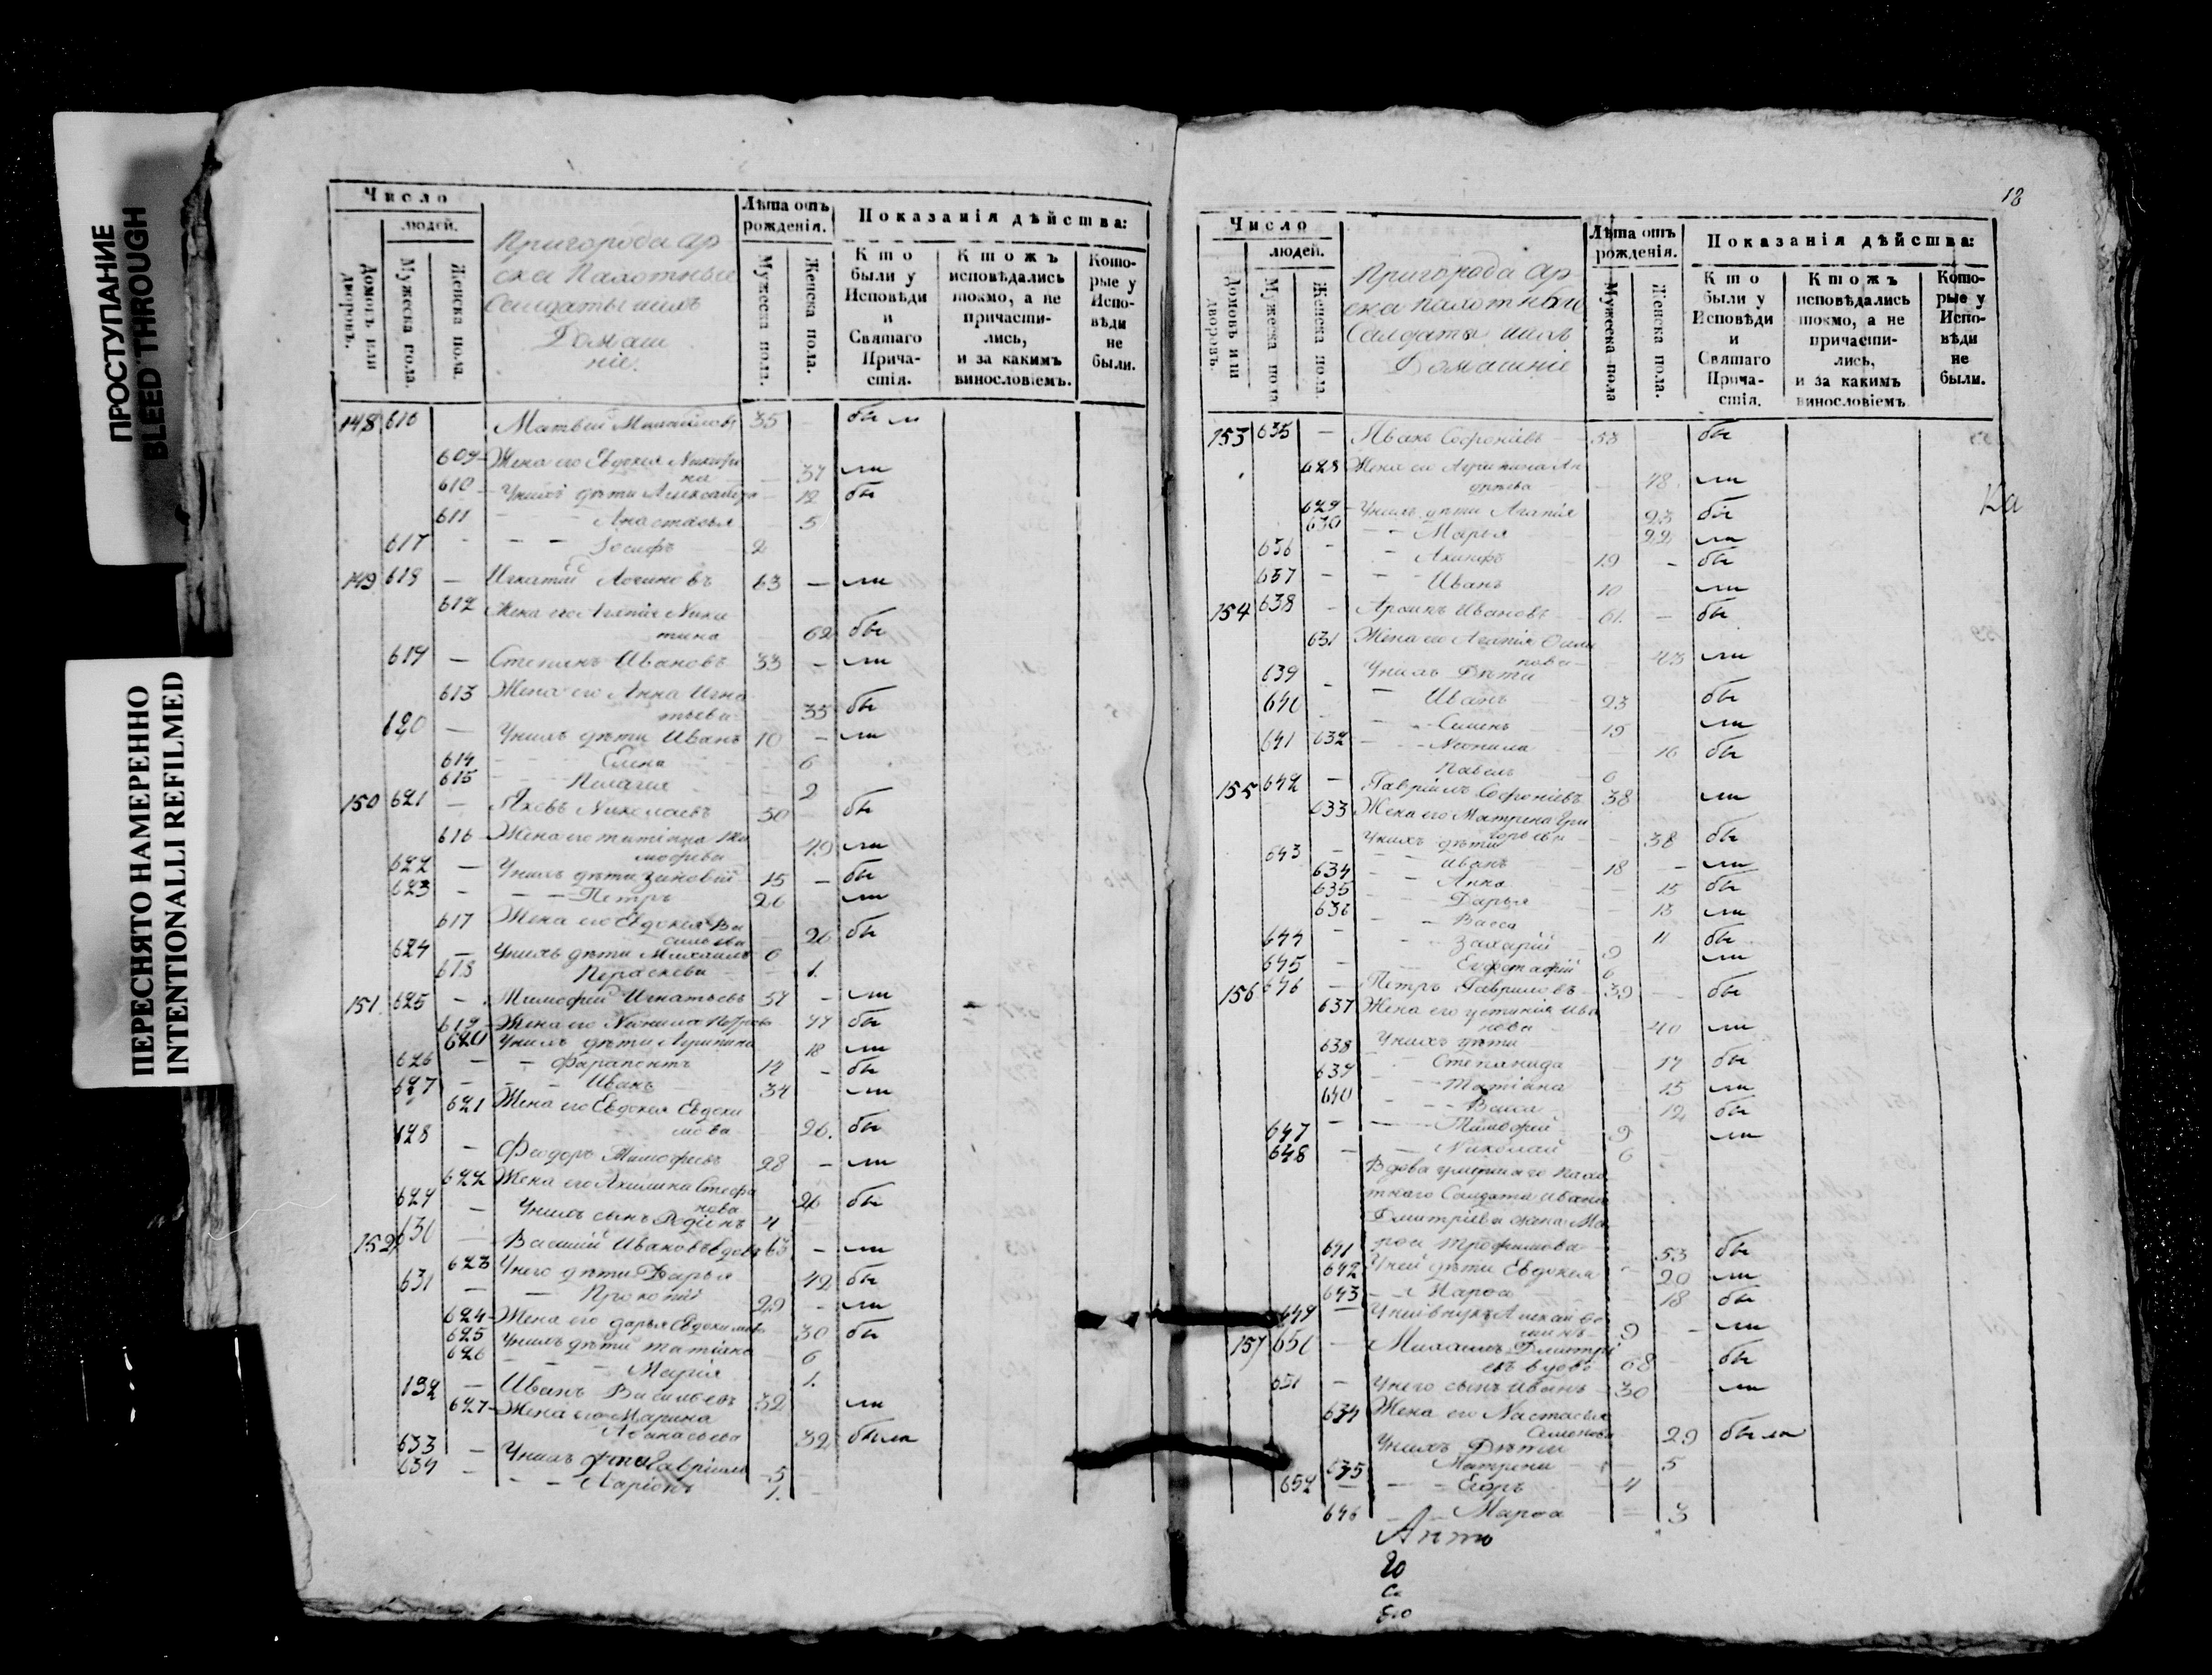 ПРОСТУПАНИЕ
BLEED THROUGH
ПЕРЕСНЯТО НАМЕРЕННО
INTENTIONALLI REFILMED
Число
людей.
Домовъ или дворовъ.
Мужеска пола.
Женска пола.
Пригорода Ар
ска Пахотные
Солдаты ихъ
Домаш
ніе.
Лѣта отъ рожденія.
Мужеска пола.
Женска пола.
Показанія дѣйства:
Кто были у Исповѣди и Святаго Причастія.
Ктожъ исповѣдались токмо, а не причастились, и за какимъ винословіемъ.
Которые у Исповѣди не были.
148 616 Матвей Михайловъ 35 — был
609 Жена его Евдокея Никифо
на 37 ли
610 Унихъ дѣти Александра 12 бы
611 — Анастасья 5
617 — Іосифъ 2
149 618 — Игнатій Логиновъ 63 — ли
612 Жена его Агапія Ники
тина 62 бы
619 — Степанъ Ивановъ 33 — ли
613 Жена его Анна Игна
тьева 35 бы
620 — Унихъ дѣти Иванъ 10 — ли
614 — Елена 6
615 — Пелагея 2
150 621 — Яковъ Николаевъ 50 — бы
616 Жена его татіана Ти
мофеева 49 ли
622 — Унихъ дѣти Зиновій 15 — бы
623 — Петръ 26 ли
617 Жена его Евдокея Ва
сильева 26 бы
624 — Унихъ дѣти Михаилъ 6
618 Параскева 1.
151. 625 — Тимофей Игнатьевъ 57 — ли
619 Жена его Неонила Петрова 47 бы
620 Унихъ дѣти Агрипина 18 ли
626 — Фарапонтъ 12 — бы
627 — Иванъ 34 ли
621 Жена его Евдокея Евдоки
мова 26. бы
628 — Феодоръ Тимофеевъ 28 — ли
622 Жена его Акилина Стефа
нова 26 бы
629 — Унихъ сынъ Родіонъ 4
152 630 — Василій Ивановъ вдовъ 63 — ли
623 Унего дѣти Дарья 42 бы
631 — Прокопій 29 — ли
624 Жена его дарья Евдокимова 30 бы
625 Унихъ дѣти татіана 6
626 — Марія 1.
132 — Иванъ Васильевъ 32 ли
627 Жена его Марина
Афанасьева 32 была
633 — Унихъ дѣти Гавріилъ 5
634 — Ларіонъ 1.
18
Число
людей.
Домовъ или дворовъ.
Мужеска пола
Женска пола.
Пригорода Ар
ска пахотные
Солдаты ихъ
Домашніе
Лѣта отъ рожденія.
Мужеска пола
Женска пола.
Показанія дѣйства:
Кто были у Исповѣди и Святаго Причастія.
Ктожъ исповѣдались токмо, а не причастились, и за какимъ винословіемъ
Которые у Исповѣди не были.
153 635 — Иванъ Софоніевъ 53 бы
628 Жена его Агрипина Ан
дреева 48 ли
Ка
629 Унихъ дѣти Агапія 23 бы
630 — Марья 22 ли
636 — Акинфъ 19 — бы
637 — Иванъ 10 ли
154 638 — Ивановъ 61 — бы
631 Жена его Агапія
нова 43 ли
639 Унихъ Дѣти
Иванъ 23 бы
640 — Семенъ 15 ли
641 632 — Неонила 16 бы
Павелъ 6
155 642 — Гавріилъ Софоніевъ 38 ли
633 Жена его Матрена Гри
горьева 38 бы
643 — Унихъ дѣти
Иванъ 18 — ли
634 — Анна 15 бы
635 — Дарья 13 ли
636 — Васса 11 бы
644 — Захарій 9 ли
645 — Евфстафій 6
156 646 — Петръ Гавриловъ 39 — бы
637 Жена его устинія Ива
нова 40 ли
Унихъ дѣти
638 — Степанида 17 бы
639 — Татіана 15 ли
640 — Васса 12 бы
647 — Тимофей 9 ли
648 — Николай 6
Вдова умершаго Пахо
тнаго Солдата Ивана
Дмитріева жена Ма
641 рѳа Трофимова 53 бы
642 Уней дѣти Евдокея 20 ли
643 — Марѳа 18 бы
649 — Уней внукъ Алексей Се
9 — ли
157 650 — Михаилъ Дмитрі
евъ вдовъ 68 — бы
651 — Унего сынъ Иванъ 30 — ли
634 Жена его Настасья
Семенова 29 была
Унихъ Дѣти
635 Матрена 5
652 — Егоръ 4
646 — Марѳа 3